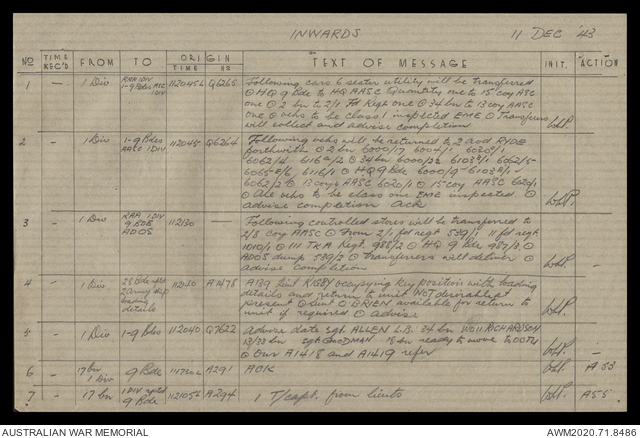 INWARDS
11 DEC '43
No TIME REC'D FROM TO ORIGIN TIME NS TEXT OF MESSAGE INIT. ACTION
1 1 Div RAA 1 DIV 1-9 Bdes AASC 1 DIV 112045L Q6265 Following cars 6 seater utility will be transferred
⊙ HQ 9 Bde to HQ AASC Quantity one to 15 coy AASC
one ⊙ 2 bn to 2/1 Fd Regt one ⊙ 34 bn to 13 coy AASC
one ⊙ vehs to be class 1 inspected EME ⊙ Transferors
will collect and advise completion
2 1 Div 1-9 Bdes AASC 1 DIV 112045 Q6264 Following vehs will be returned to 2 aod RYDE
forthwith ⊙ 2 bn 6000/17 6004/1 6038/1
6062/4 6116/2 ⊙ 34 bn 6000/22 6103/1 6062/5
6065/6 6116/1 ⊙ HQ 9 Bde 6000/9 6103/1
6062/2 ⊙ 13 coy AASC 6020/1 ⊙ 15 coy AASC 6020/1
⊙ All vehs to be class one EME inspected ⊙
advise completion Ack
3 1 Div RAA 1 DIV 9 BDE ADOS 112130 — Following controlled stores will be transferred to
2/3 coy AASC ⊙ From 2/1 fd regt 539/1 11 fd regt
1010/1 ⊙ 111 TKA Regt 988/2 ⊙ HQ 9 Bde 987/3 ⊙
ADOS dump 539/2 ⊙ transferors will deliver ⊙
advise completion —
4 1 Div 28 Bde rptd 2 army dep loading details A1478 A139 Lieut RIGBY occupying key position with loading
details and return to unit NOT desirable at
present ⊙ Lieut O'BRIEN available for return to
unit if required ⊙ advise —
5 1 Div 1-9 Bdes 112040 Q7622 Advise date sgt ALLEN L.B. 34 bn WO11 RICHARDSON
13/33 bn sgt GOODMAN 18 bn ready to move to OCTU
⊙ Our A1418 and A1419 refer —
6 17 bn 1 Div 9 Bde A291 ACK A53
7 17 bn 1 DIV rptd 9 Bde 112105L A294 1 T/capt. from lieuts A55
AUSTRALIAN WAR MEMORIAL
AWM2020.71.8486